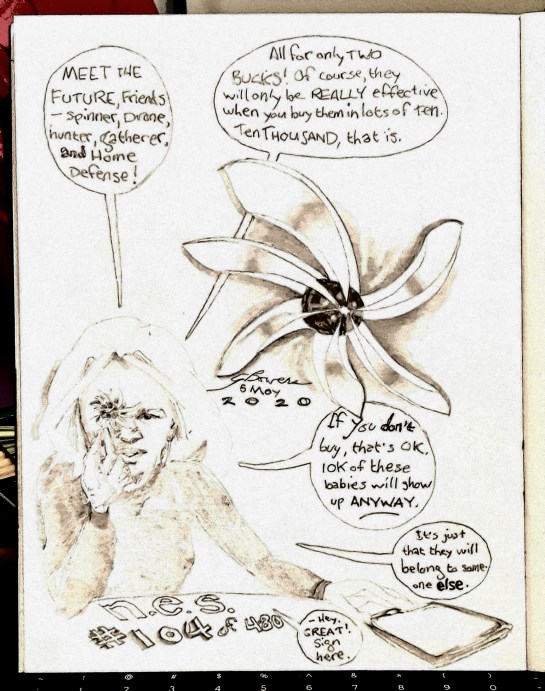 MEET THE
FUTURE, Friends
— Spinner, Drone,
hunter, gatherer,
and Home
Defense!
All for only TWO
BUCKS! Of course, they
will only be REALLY effective
when you buy them in lots of Ten.
TenTHOUSAND, that is.
5 May
2020
If you don't
buy, that's OK.
10K of these
babies will show
up ANYWAY.
It's just
that they will
belong to some-
one else.
n.e.s.
#104 of 480
- Hey,
GREAT!
Sign
here.